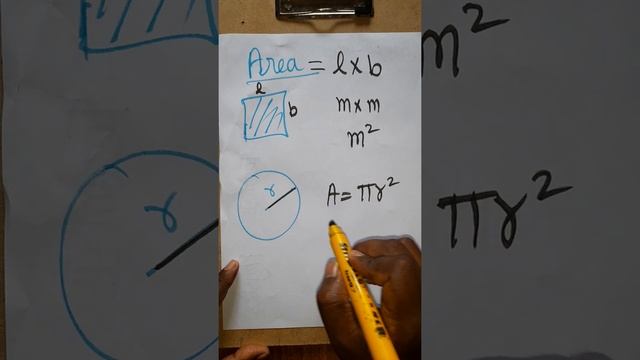 Area = l x b
l
b
m x m
m²
r
A = πr²